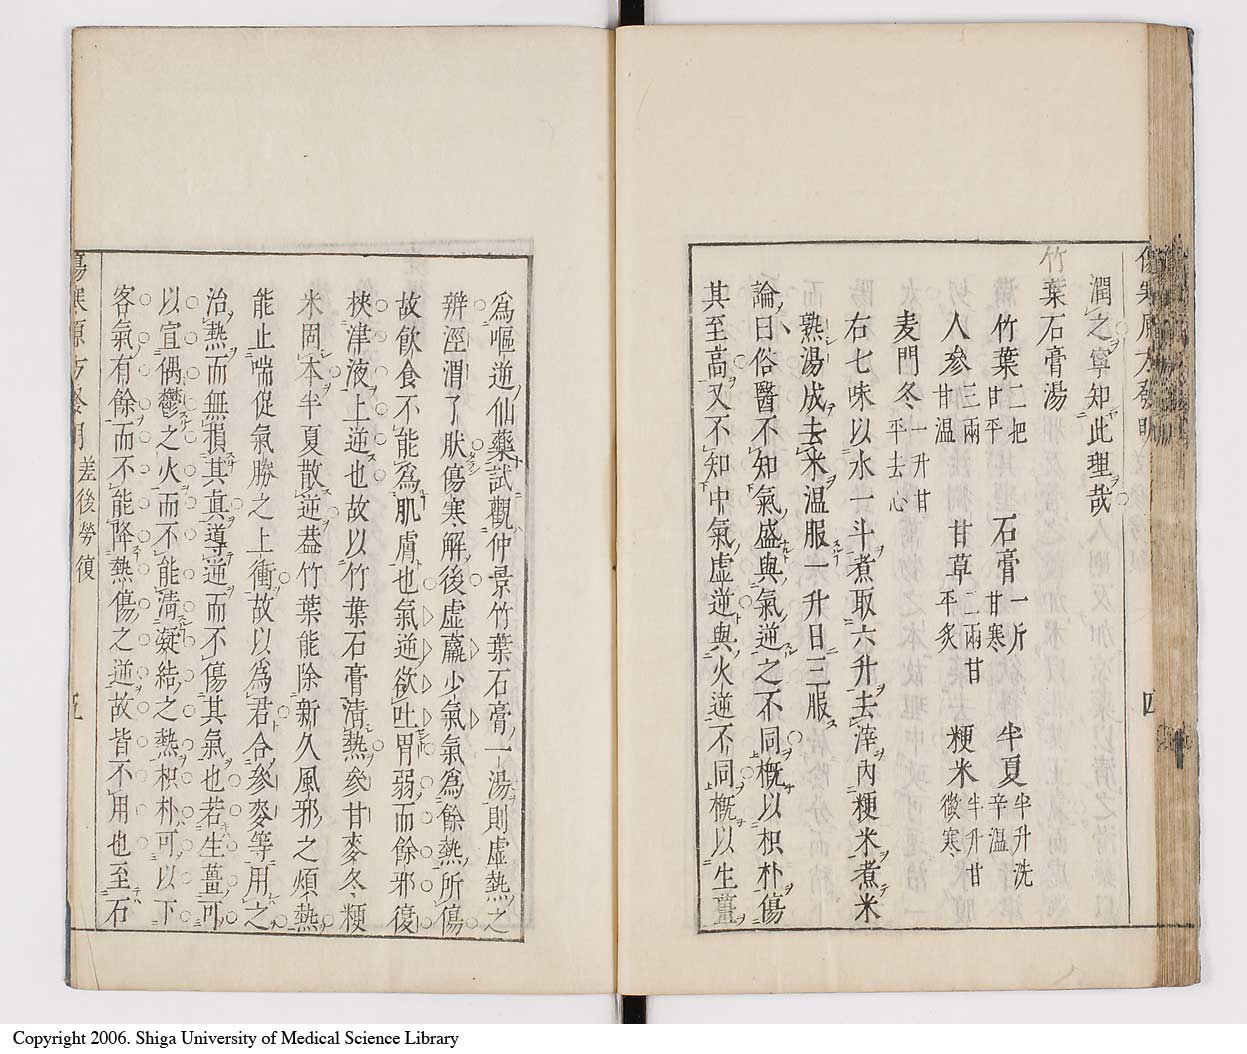 傷寒原方發明
四
潤之寧知此理哉
竹葉石膏湯
竹葉二把甘平 石膏一斤甘寒 半夏半升洗辛温
人參三兩甘温 甘草二兩甘平炙 粳米半升甘微寒
麦門冬一升甘平去心
右七味以水一斗煮取六升去滓內粳米煮米
熟湯成去米温服一升日三服
論曰俗醫不知氣盛與氣逆之不同概以枳朴傷
其至高又不知中氣虚逆與火逆不同概以生薑
為嘔逆仙藥試觀仲景竹葉石膏一湯則虚熱之
辨涇渭了肰傷寒解後虚羸少氣氣為餘熱所傷
故飲食不能為肌膚也氣逆欲吐胃弱而餘邪復
挾津液上逆也故以竹葉石膏清熱參甘麥冬粳
米固本半夏散逆葢竹葉能除新久風邪之煩熱
能止喘促氣勝之上衝故以為君合參麥等用之
治熱而無損其真導逆而不傷其氣也若生薑可
以宣偶鬱之火而不能清凝結之熱枳朴可以下
客氣有餘而不能降熱傷之逆故皆不用也至石
傷寒原方發明 差後勞復 五
Copyright 2006. Shiga University of Medical Science Library